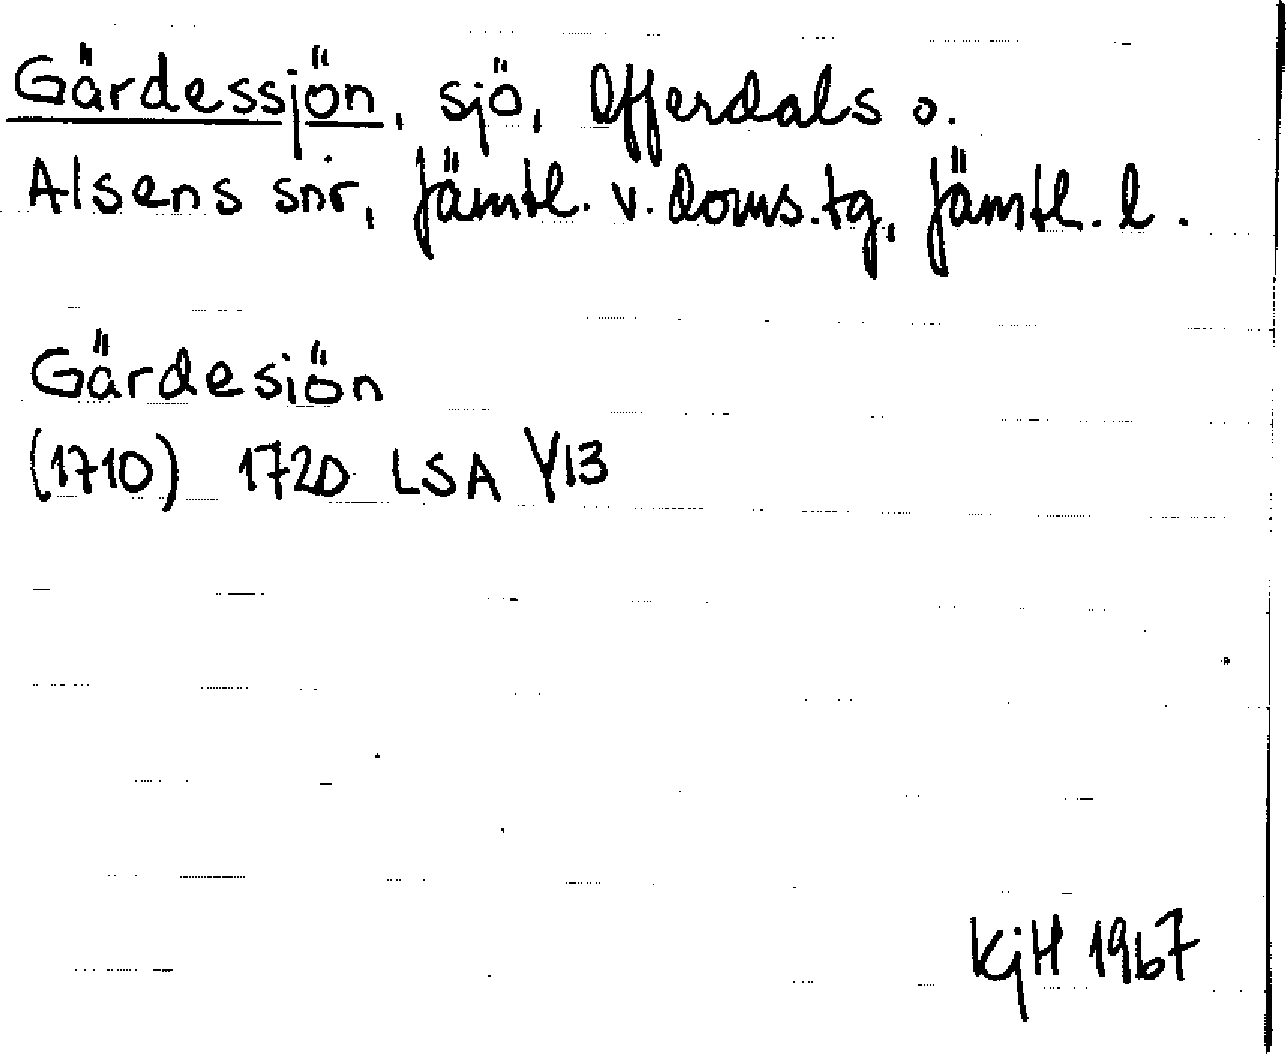 Gärdessjön, sjö, Offerdals o.
Alsens snr, Jämtl. v. doms.tg, Jämtl. l.
Gärdesiön
(1710) 1720 LSA Y13
KjH 1967